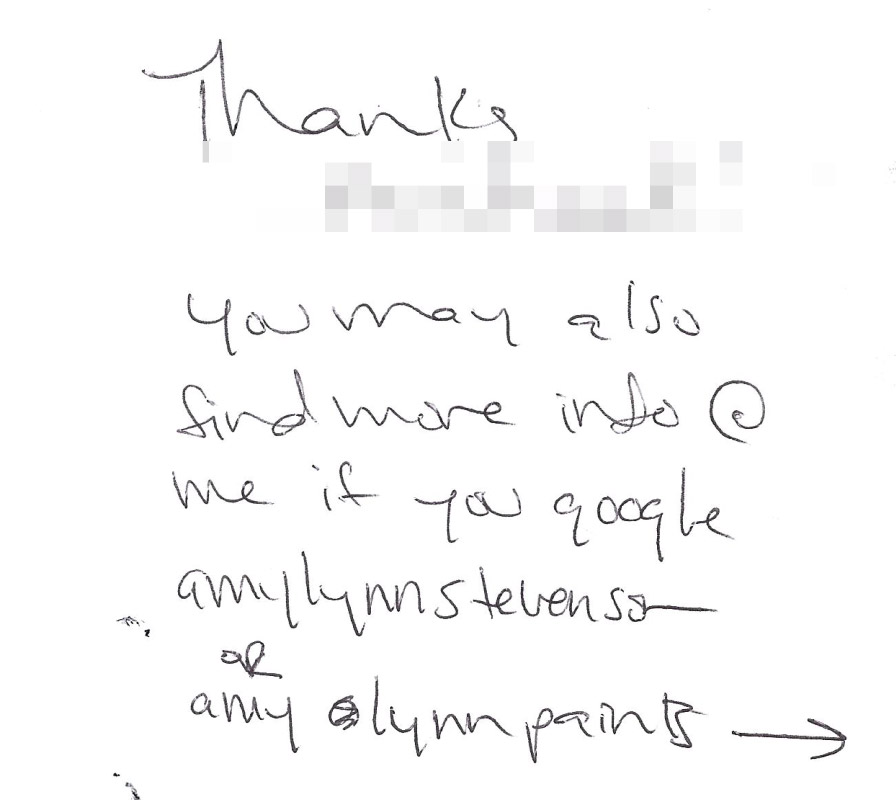 Thanks
you may also
find more info @
me if you google
amylynnstevenson
or
amy lynnpaints →